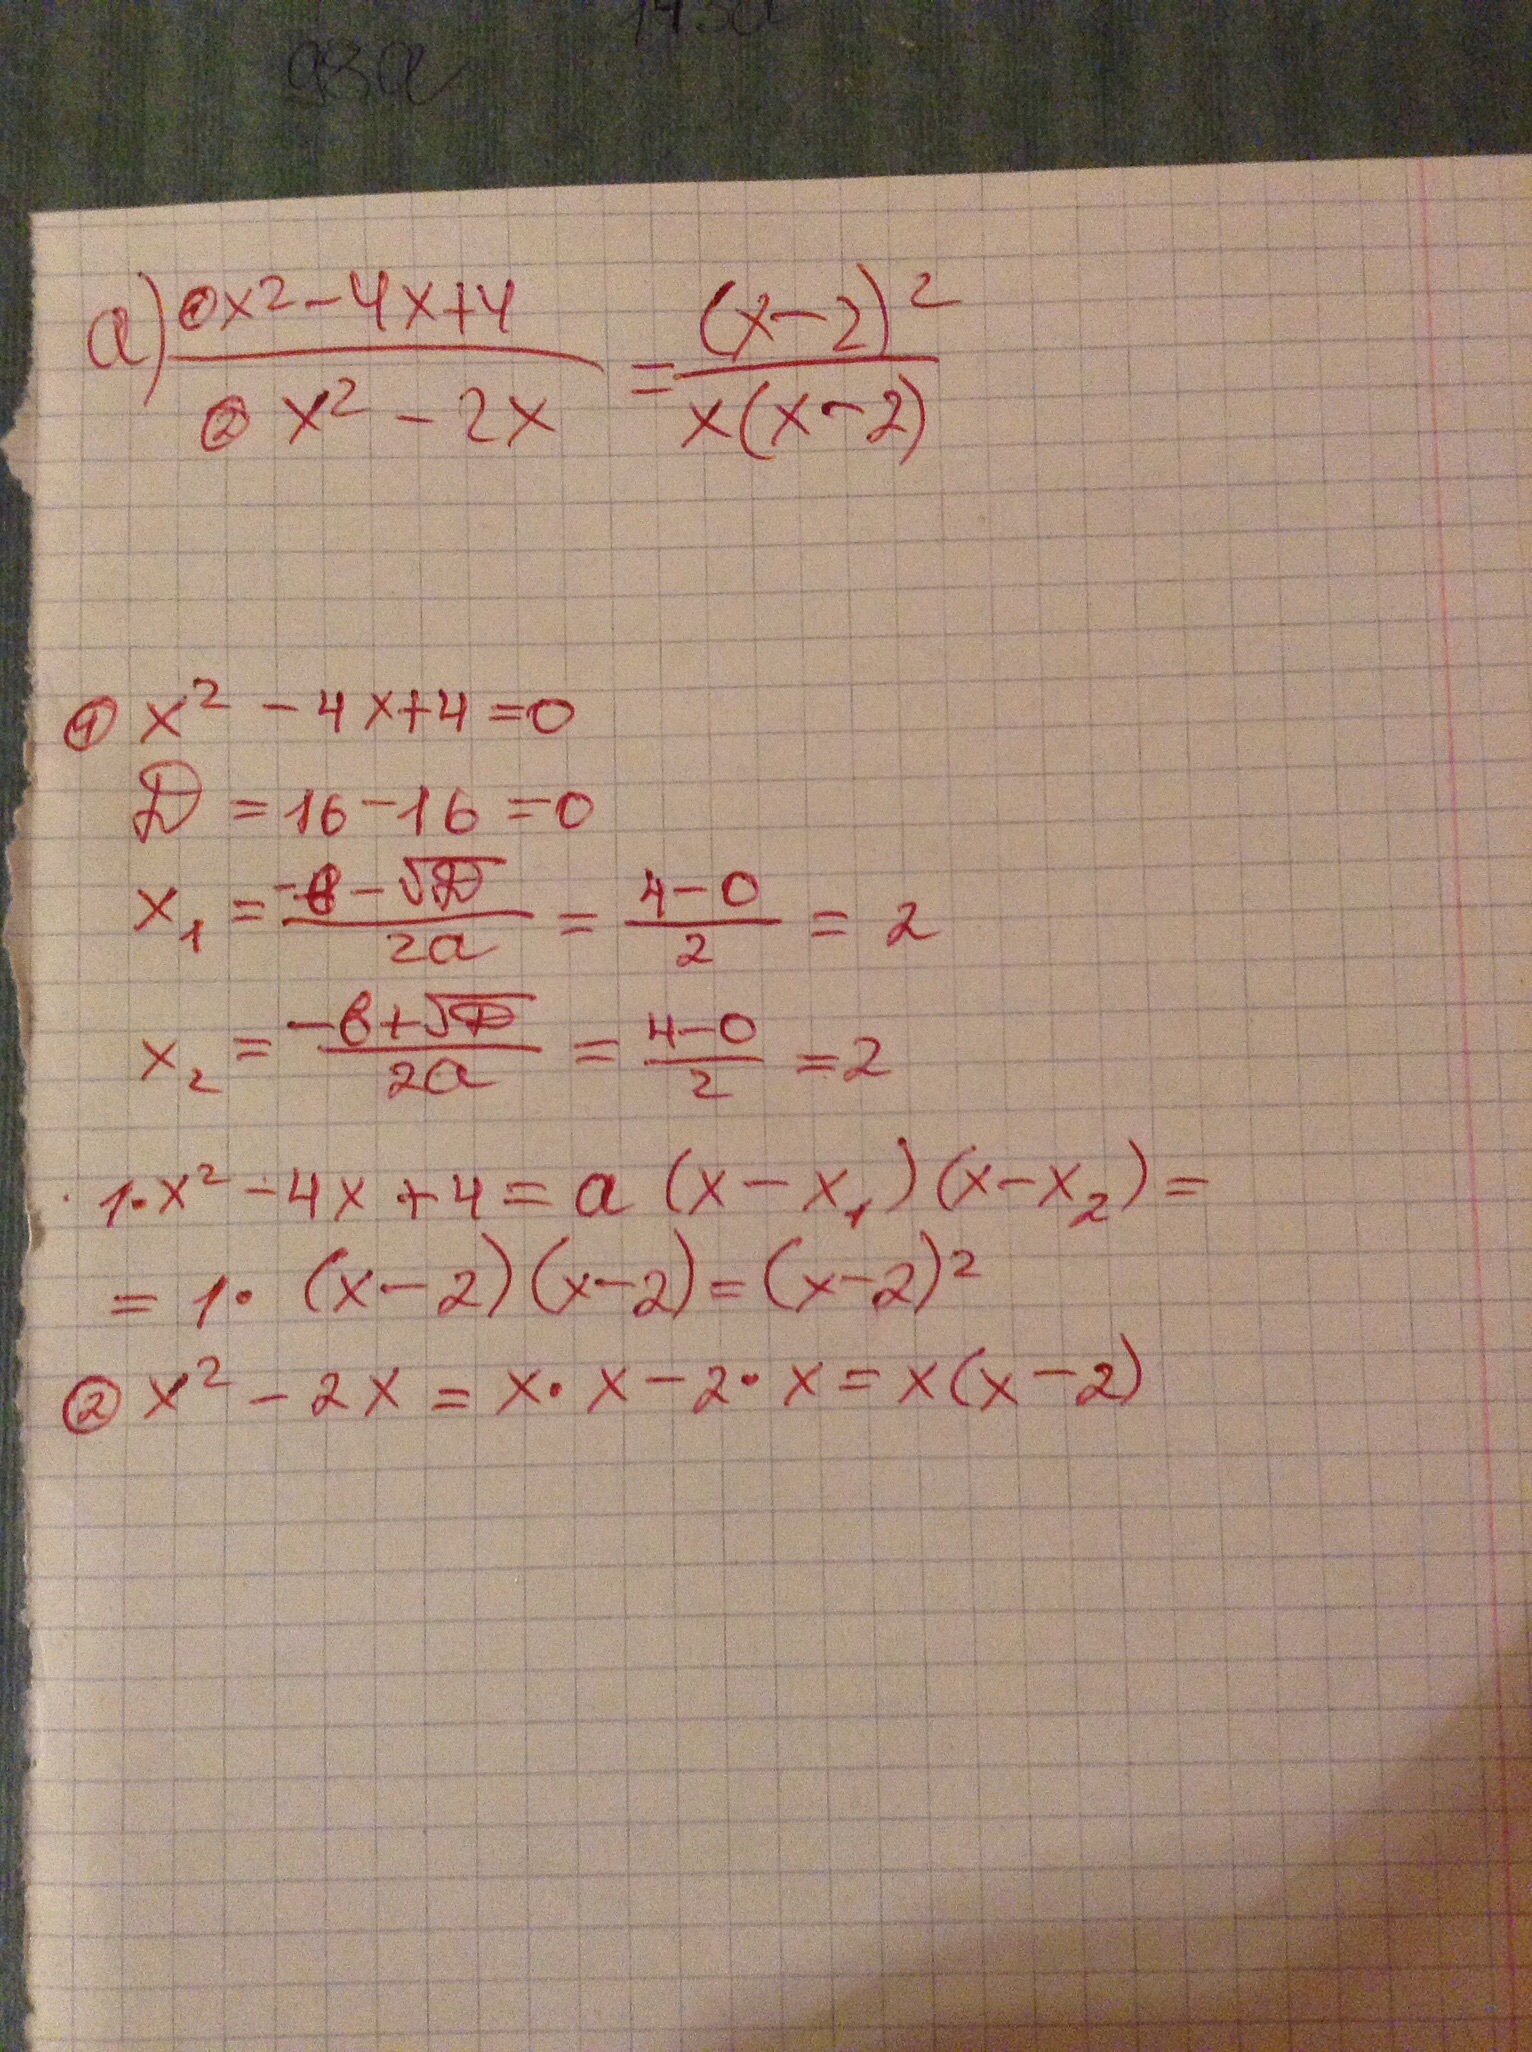 а) ① x² - 4x + 4 / ② x² - 2x = (x - 2)² / x(x - 2)
① x² - 4x + 4 = 0
D = 16 - 16 = 0
x₁ = -в - √D / 2a = 4 - 0 / 2 = 2
x₂ = -в + √D / 2a = 4 - 0 / 2 = 2
1·x² - 4x + 4 = a (x - x₁)(x - x₂) =
= 1· (x - 2)(x - 2) = (x - 2)²
② x² - 2x = x·x - 2·x = x(x - 2)